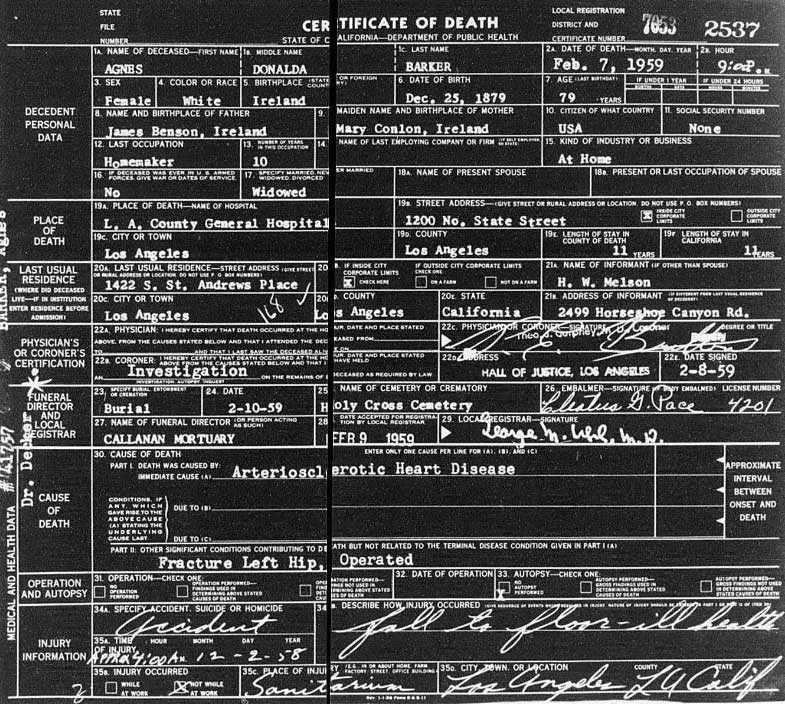 STATE FILE NUMBER
CERTIFICATE OF DEATH
STATE OF CALIFORNIA—DEPARTMENT OF PUBLIC HEALTH
LOCAL REGISTRATION DISTRICT AND CERTIFICATE NUMBER
7053 2537
DECEDENT PERSONAL DATA
1A. NAME OF DECEASED—FIRST NAME 1B. MIDDLE NAME 1C. LAST NAME 2A. DATE OF DEATH—MONTH, DAY, YEAR 2B. HOUR
AGNES DONALDA BARKER Feb. 7, 1959 9:
3. SEX 4. COLOR OR RACE 5. BIRTHPLACE (STATE OR FOREIGN COUNT 6. DATE OF BIRTH 7. AGE (LAST BIRTHDAY) IF UNDER 1 YEAR IF UNDER 24 HOURS
Female White Ireland Dec. 25, 1879 79 YEARS
8. NAME AND BIRTHPLACE OF FATHER 9. MAIDEN NAME AND BIRTHPLACE OF MOTHER 10. CITIZEN OF WHAT COUNTRY 11. SOCIAL SECURITY NUMBER
James Benson, Ireland Mary Conlon, Ireland USA None
12. LAST OCCUPATION 13. NUMBER OF YEARS IN THIS OCCUPATION 14. NAME OF LAST EMPLOYING COMPANY OR FIRM (IF SELF EMPLOYED SO STATE) 15. KIND OF INDUSTRY OR BUSINESS
Homemaker 10 At Home
16. IF DECEASED WAS EVER IN U. S. ARMED FORCES, GIVE WAR OR DATES OF SERVICE 17. SPECIFY MARRIED, NEVER MARRIED WIDOWED, DIVORCED 18A. NAME OF PRESENT SPOUSE 18B. PRESENT OR LAST OCCUPATION OF SPOUSE
No Widowed
PLACE OF DEATH
19A. PLACE OF DEATH—NAME OF HOSPITAL 19B. STREET ADDRESS—(GIVE STREET OR RURAL ADDRESS OR LOCATION. DO NOT USE P. O. BOX NUMBERS)
L. A. County General Hospital 1200 No. State Street X INSIDE CITY CORPORATE LIMITS OUTSIDE CITY CORPORATE LIMITS
19C. CITY OR TOWN 19D. COUNTY 19E. LENGTH OF STAY IN COUNTY OF DEATH 19F. LENGTH OF STAY IN CALIFORNIA
Los Angeles Los Angeles 11 YEARS 11 YEARS
LAST USUAL RESIDENCE (WHERE DID DECEASED LIVE—IF IN INSTITUTION ENTER RESIDENCE BEFORE ADMISSION)
20A. LAST USUAL RESIDENCE—STREET ADDRESS (GIVE STREET OR RURAL ADDRESS OR LOCATION. DO NOT USE P. O. BOX NUMBERS) IF INSIDE CITY CORPORATE LIMITS CHECK HERE IF OUTSIDE CITY CORPORATE LIMITS CHECK ONE: ON A FARM NOT ON A FARM 21A. NAME OF INFORMANT (IF OTHER THAN SPOUSE)
1422 S. St. Andrews Place X H. W. Melson
20C. CITY OR TOWN COUNTY 20E. STATE 21B. ADDRESS OF INFORMANT (IF DIFFERENT FROM LAST USUAL RESIDENCE OF DECEDENT)
Los Angeles 168 Los Angeles California 2499 Horseshoe Canyon Rd.
PHYSICIAN'S OR CORONER'S CERTIFICATION
22A. PHYSICIAN: I HEREBY CERTIFY THAT DEATH OCCURRED AT THE HOUR, DATE AND PLACE STATED ABOVE, FROM THE CAUSES STATED BELOW AND THAT I ATTENDED THE DECEASED FROM TO AND THAT I LAST SAW THE DECEASED ALIVE ON 22C. PHYSICIAN OR CORONER—SIGNATURE DEGREE OR TITLE
22B. CORONER: I HEREBY CERTIFY THAT DEATH OCCURRED AT THE HOUR, DATE AND PLACE STATED ABOVE FROM THE CAUSES STATED BELOW AND THAT I HAVE HELD 22D. ADDRESS 22E. DATE SIGNED
AN Investigation ON THE REMAINS OF DECEASED AS REQUIRED BY LAW HALL OF JUSTICE, LOS ANGELES 2-8-59
INVESTIGATION, AUTOPSY, INQUEST
FUNERAL DIRECTOR AND LOCAL REGISTRAR
23. SPECIFY BURIAL, ENTOMBMENT OR CREMATION 24. DATE 25. NAME OF CEMETERY OR CREMATORY 26. EMBALMER—SIGNATURE (IF BODY EMBALMED) LICENSE NUMBER
Burial 2-10-59 Holy Cross Cemetery Cleatus G. Pace 4201
27. NAME OF FUNERAL DIRECTOR (OR PERSON ACTING AS SUCH) 28. DATE ACCEPTED FOR REGISTRATION BY LOCAL REGISTRAR 29. LOCAL REGISTRAR—SIGNATURE
CALLANAN MORTUARY FEB 9 1959 George M. Uhl, M.D.
CAUSE OF DEATH
30. CAUSE OF DEATH ENTER ONLY ONE CAUSE PER LINE FOR (A), (B), AND (C)
PART I. DEATH WAS CAUSED BY: IMMEDIATE CAUSE (A) Arteriosclerotic Heart Disease
CONDITIONS, IF ANY, WHICH GAVE RISE TO THE ABOVE CAUSE (A) STATING THE UNDERLYING CAUSE LAST
DUE TO (B)
DUE TO (C)
APPROXIMATE INTERVAL BETWEEN ONSET AND DEATH
PART II: OTHER SIGNIFICANT CONDITIONS CONTRIBUTING TO DEATH BUT NOT RELATED TO THE TERMINAL DISEASE CONDITION GIVEN IN PART I (A)
Fracture Left Hip, Operated
OPERATION AND AUTOPSY
31. OPERATION—CHECK ONE: NO OPERATION PERFORMED OPERATION PERFORMED—FINDINGS USED IN DETERMINING ABOVE STATED CAUSES OF DEATH 32. DATE OF OPERATION 33. AUTOPSY—CHECK ONE: X NO AUTOPSY PERFORMED AUTOPSY PERFORMED—GROSS FINDINGS USED IN DETERMINING ABOVE STATED CAUSES OF DEATH AUTOPSY PERFORMED—GROSS FINDINGS NOT USED IN DETERMINING ABOVE STATED CAUSES OF DEATH
INJURY INFORMATION
34A. SPECIFY ACCIDENT, SUICIDE OR HOMICIDE DESCRIBE HOW INJURY OCCURRED
Accident fall to floor-ill health
35A. TIME OF INJURY HOUR MONTH DAY YEAR
Approx 4:00 A.M. 12-2-58
35B. INJURY OCCURRED WHILE AT WORK X NOT WHILE AT WORK 35C. PLACE OF INJURY (E.G. IN OR ABOUT HOME, FARM, FACTORY, STREET, OFFICE BUILDING) 35D. CITY, TOWN, OR LOCATION COUNTY STATE
Sanitarium Los Angeles LA Calif
MEDICAL AND HEALTH DATA
BARKER, Agnes
#41757
Dr. Decker